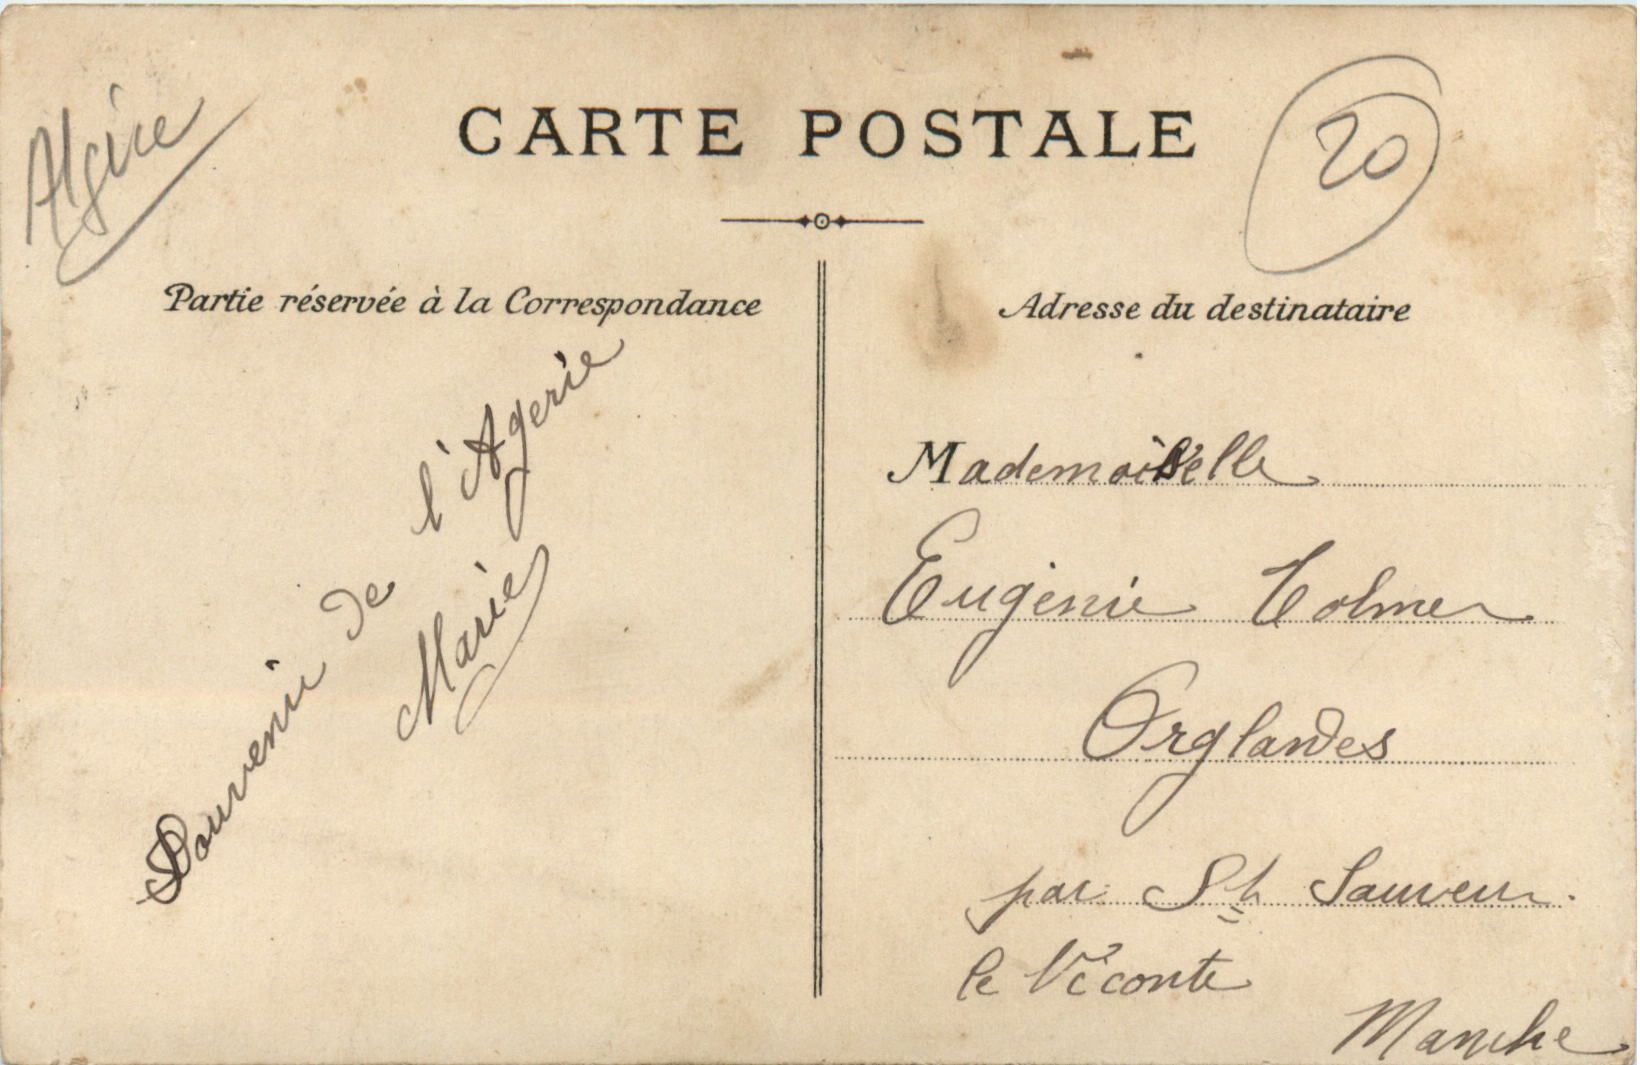 Algérie
CARTE POSTALE
20
Partie réservée à la Correspondance
Souvenir de l'Agerie
Marie
Adresse du destinataire
Mademoiselle
Eugénie Tolmer
Orglandes
par St Sauveur
le Viconte
Manche